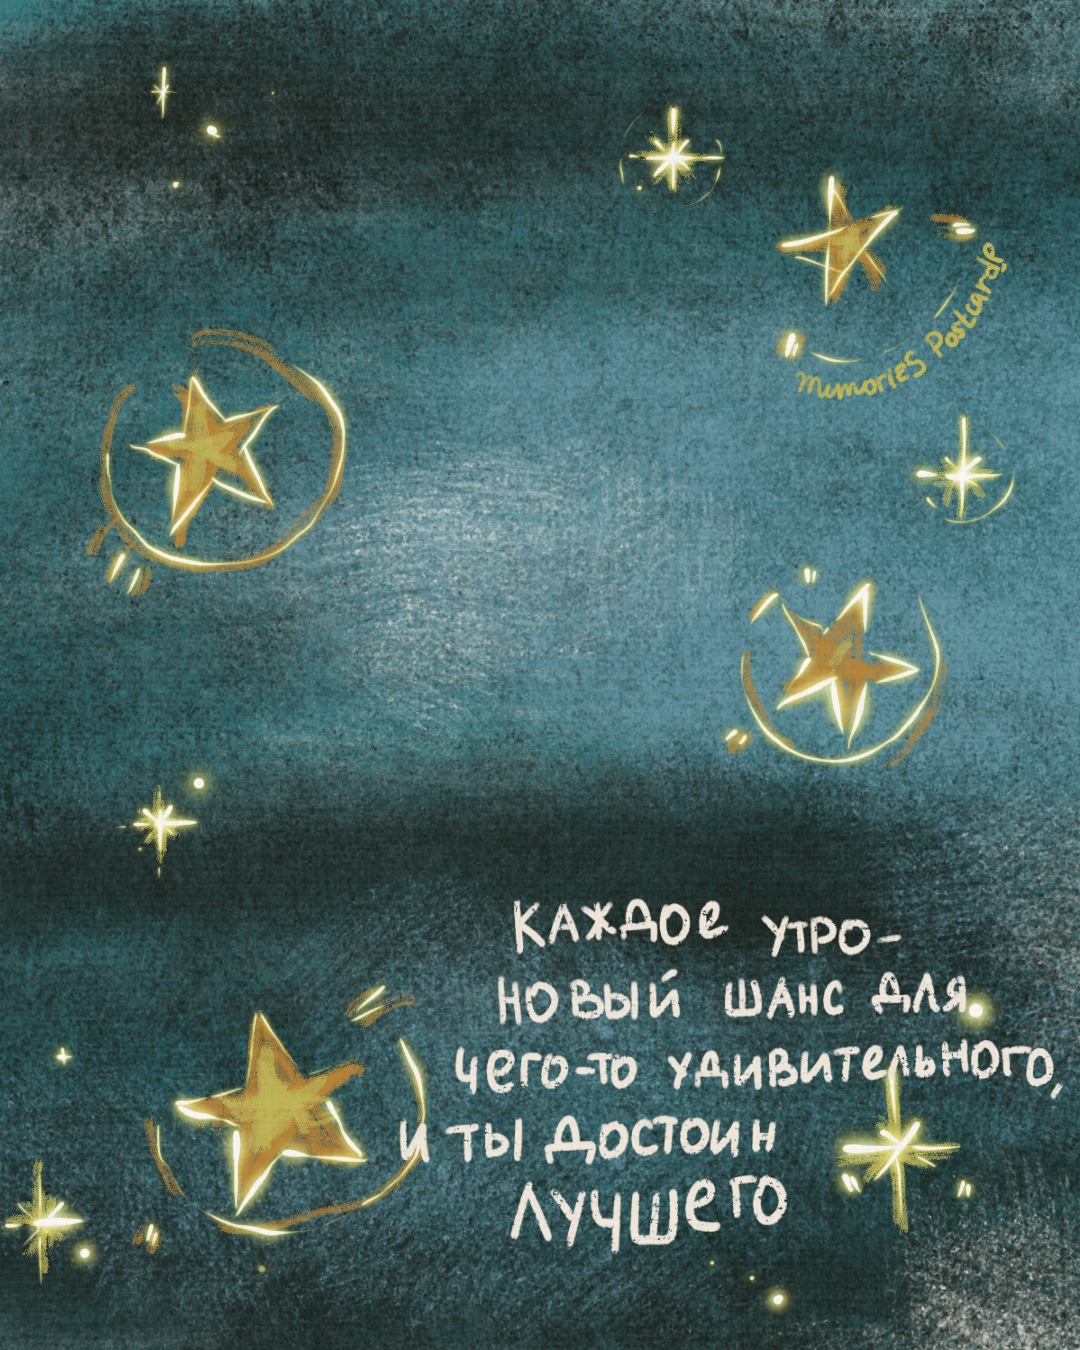 Memories Postcards
Каждое утро-
новый шанс для
чего-то удивительного,
и ты достоин
лучшего